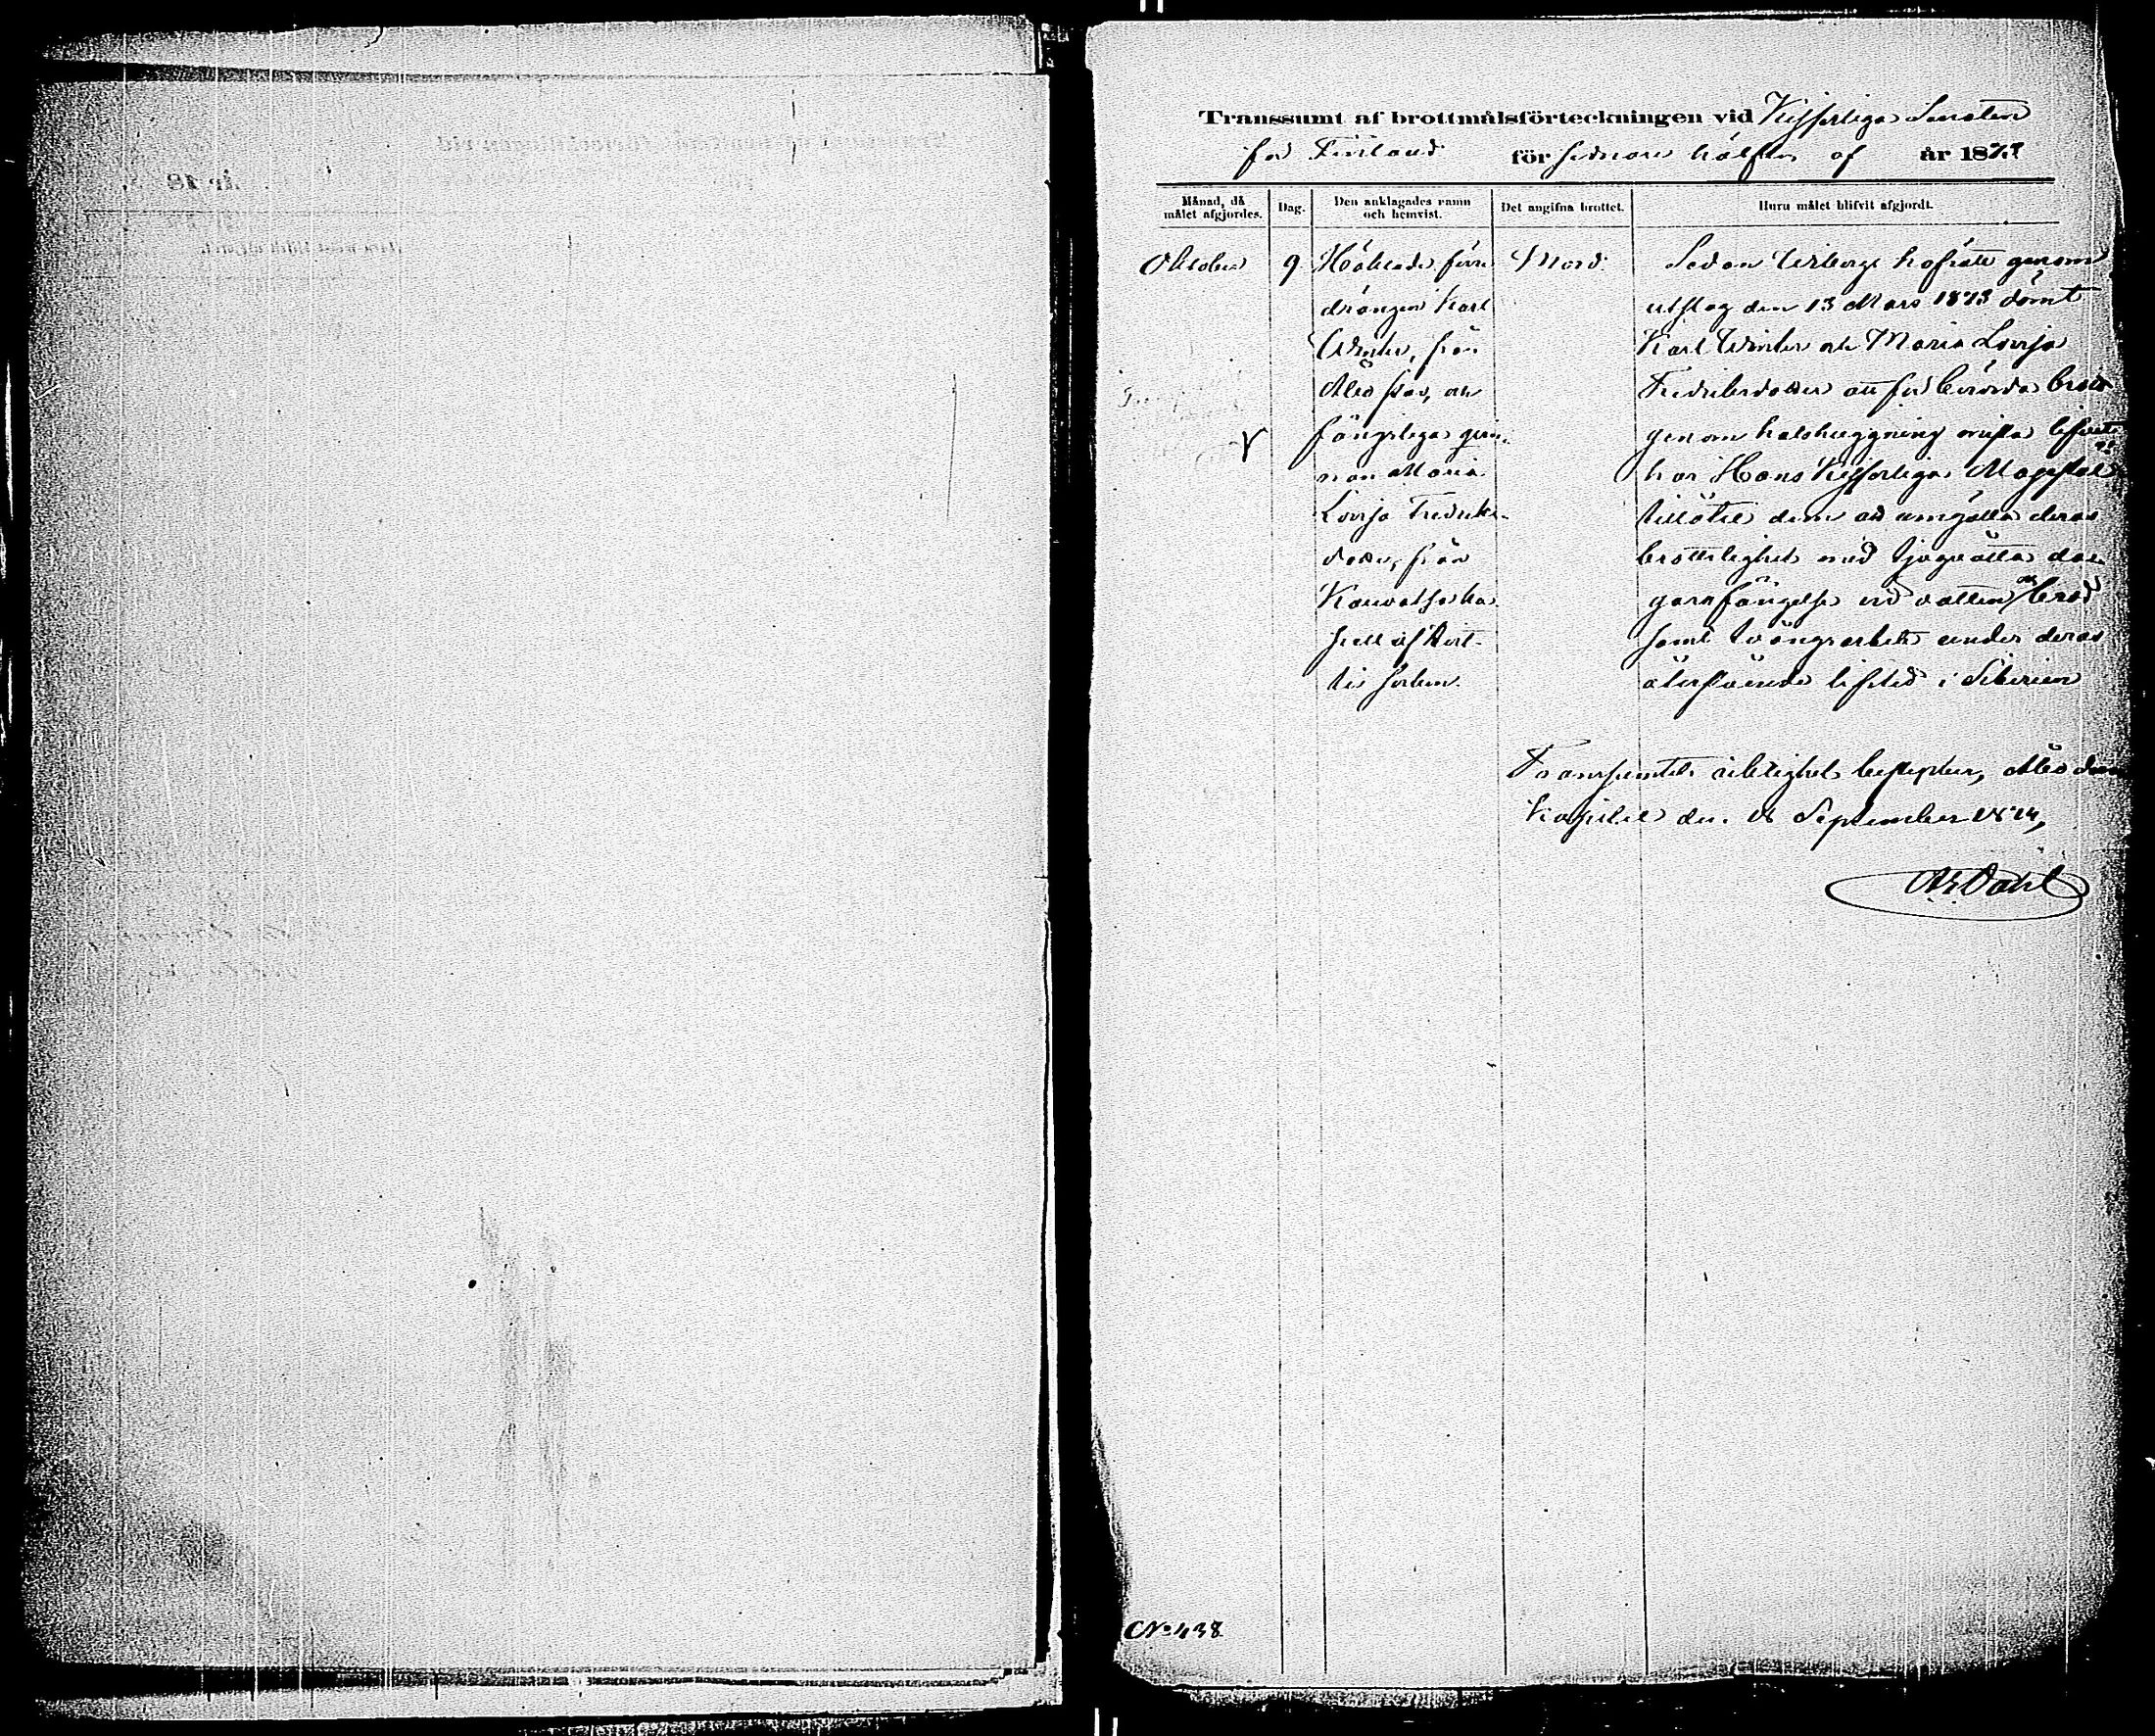 Transsumt af brottmålsförteckningen vid Kejserliga Senaten
för Finland för sednare hälften af år 1873
Månad, då målet afgjordes.
Dag.
Den anklagades namn och hemvist.
Det angifna brottet.
Huru målet blifvit afgjordt.
Oktober
9
Häktade förre
drängen Karl
Winter, från
Åbo stad, och
fängsliga qvin-
nan Maria
Lovisa Fredriks-
dotter, från
socken.
Mord.
Sedan Wiborgs hofrätt genom
utslag den 13 Mars 1873 dömt
Karl Winter och Maria Lovisa
Fredriksdotter att för berörda brott
genom halshuggning mista lifvet,
har Hans Kejserliga Majestät
tillåtit dem att umgälla deras
brottslighet med tjugeåtta da-
garsfängelse vid vatten och bröd
samt tvångsarbete under deras
återstående lifstid i Siberien
Transsumtets riktighet bestyrker, Åbo dom
kapitel den 16 September 1874,
Dahl
No 438